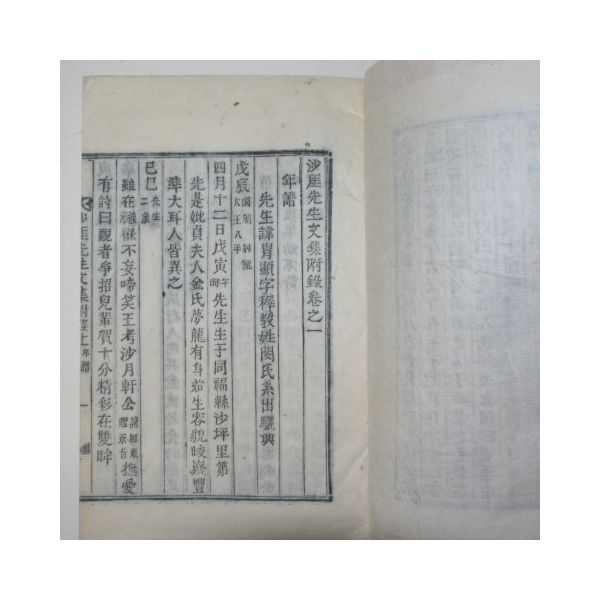 沙厓先生文集附錄卷之一
年譜
先生諱胄顯字穉敎姓閔氏系出驪興
戊辰 純祖大王八年
四月十二日戊寅 午時 先生生于同福縣沙坪里第
先是妣貞夫人金氏夢龍有身茹生容貌峻嶷豐
準大耳人皆異之
己巳 先生二歲
雖在襁褓不妄啼笑王考沙月軒公 諱相東贈承旨 撫愛
有詩曰觀者爭招兒輩賀十分精彩在雙眸
沙厓先生文集附錄上 年譜 一